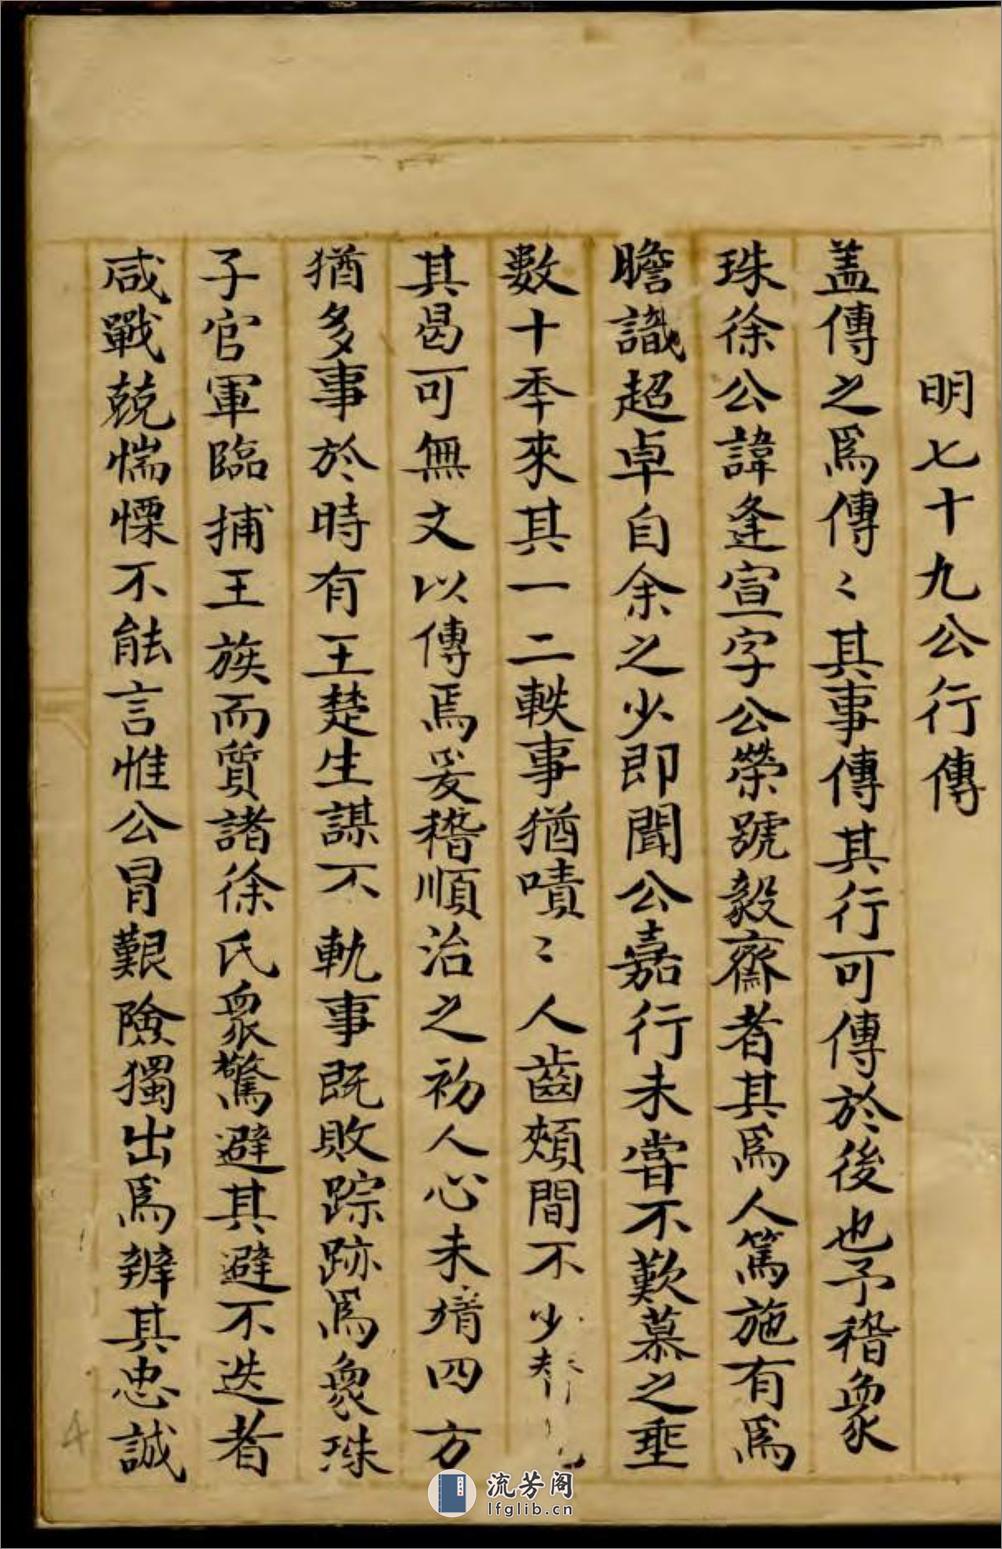 明七十九公行傳
盖傳之爲傳〻其事傳其行可傳於後也予稽衆
珠徐公諱逢宣字公榮號毅齋者其爲人篤施有爲
瞻識超卓自余之少即聞公嘉行未嘗不歎慕之垂
數十季來其一二軼事猶嘖〻人齒頰間不少
其曷可無文以傳焉爰稽順治之初人心未靖四方
猶多事於時有王楚生謀不軌事既敗踪跡爲衆珠
子官軍臨捕王族而質諸徐氏衆驚避其避不迭者
咸戰兢惴慄不能言惟公冐艱險獨出爲辨其忠誠
4
流芳阁
lfglib.cn